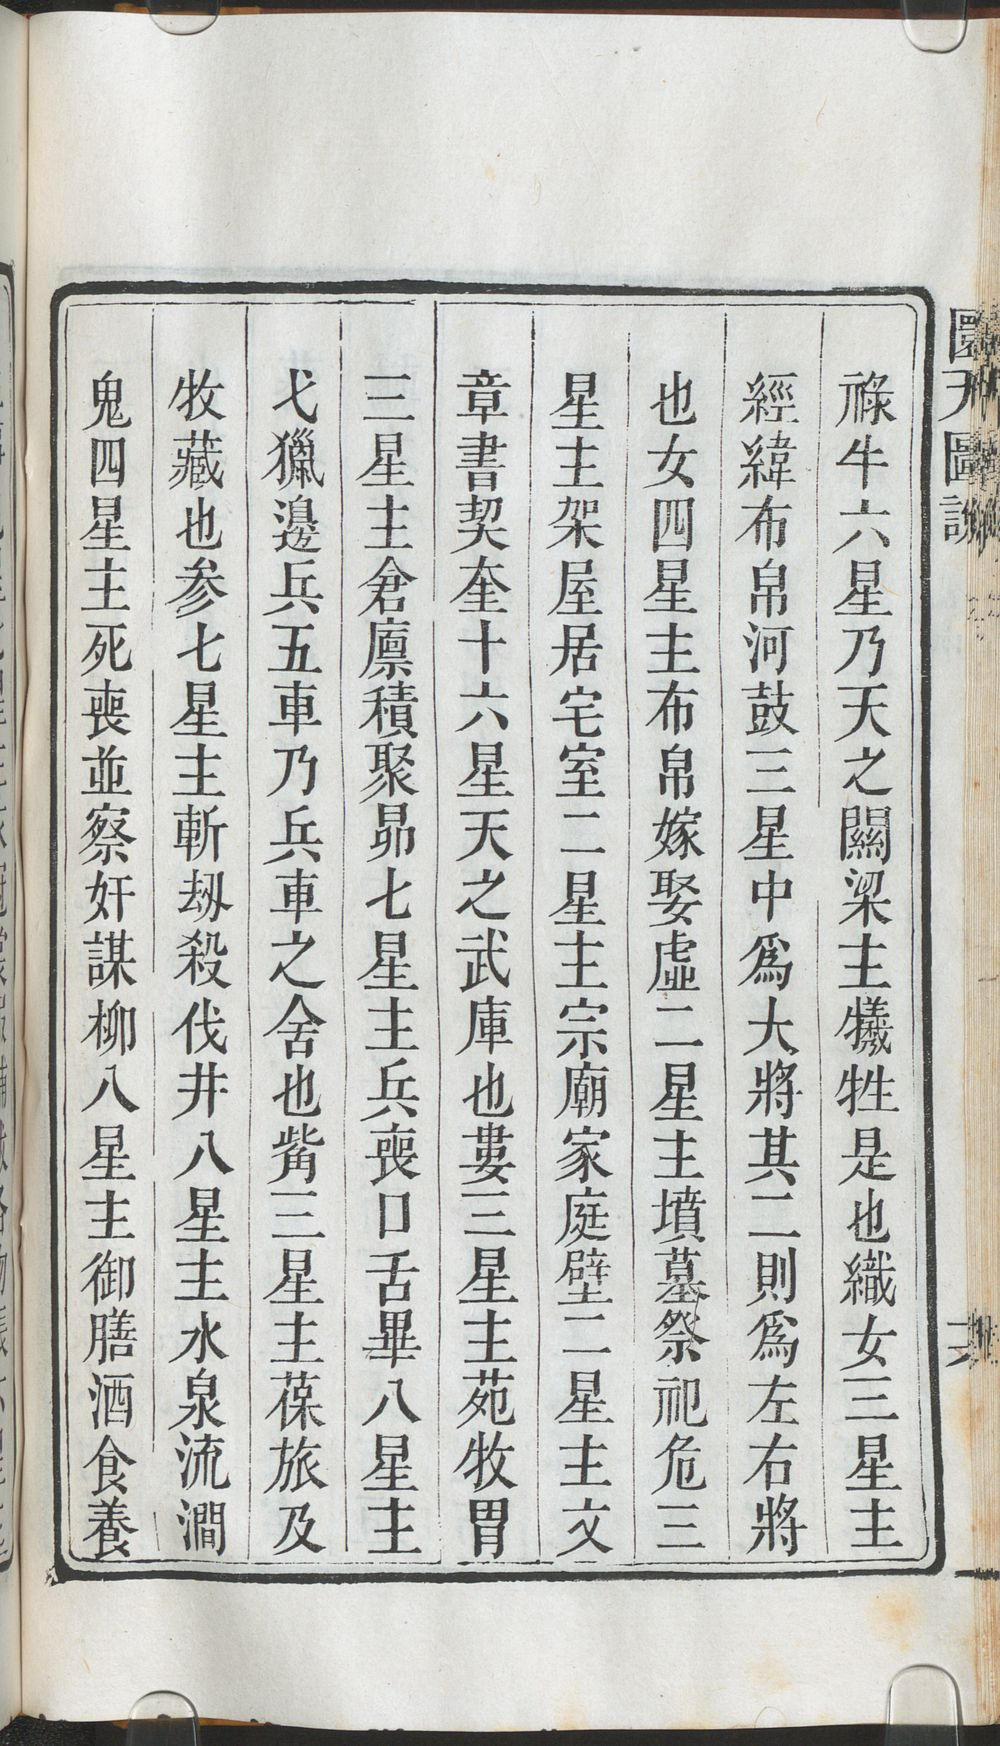 圜天圖說
祿牛六星乃天之關梁主犧牲是也織女三星主
經緯布帛河鼓三星中爲大將其二則爲左右將
也女四星主布帛嫁娶虛二星主墳墓祭祀危三
星主架屋居宅室二星主宗廟家庭壁二星主文
章書契奎十六星天之武庫也婁三星主苑牧胃
三星主倉廩積聚昴七星主兵喪口舌畢八星主
弋獵邊兵五車乃兵車之舍也觜三星主葆旅及
牧藏也參七星主斬刼殺伐井八星主水泉流澗
鬼四星主死喪並察奸謀柳八星主御膳酒食養